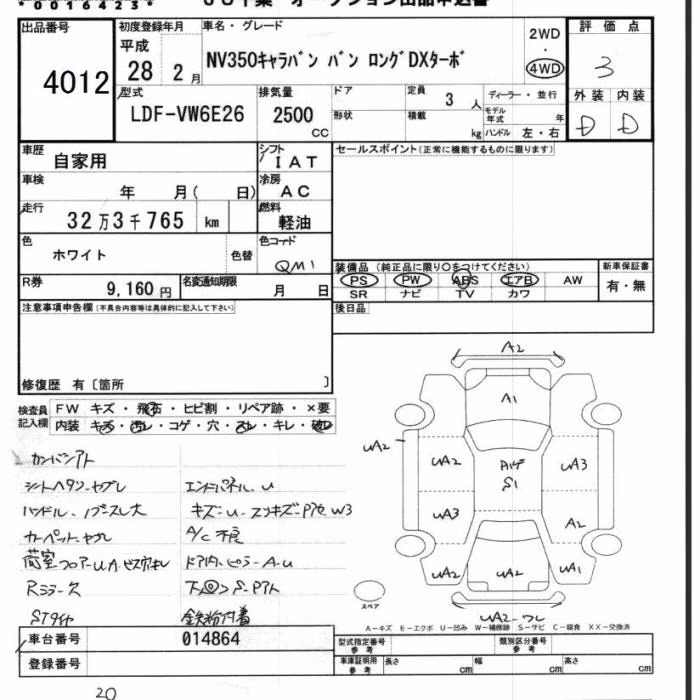 *0016423*
出品番号 初度登録年月 車名・グレード 評価点
4012 平成 28 2月 NV350キャラバン バン ロングDXターボ 2WD ・ 4WD 3
型式 LDF-VW6E26 排気量 2500 CC ドア 定員 3人 ディーラー・並行 外装 内装
形状 積載 kg モデル年式 年 ハンドル 左・右 D D
車歴 自家用 シフト IAT セールスポイント(正常に機能するものに限ります)
車検 年 月( 日) 冷房 AC
走行 32万3千765 km 燃料 軽油
色 ホワイト 色替 色コード QM1
装備品 (純正品に限り〇をつけてください) 新車保証書
PS PW ABS エアB AW 有・無
SR ナビ TV カワ
R券 9,160円 名変通知期限 月 日
注意事項申告欄(不具合内容等は具体的に記入して下さい) 後日品
修復歴 有〔箇所 〕
検査員記入欄 FW キズ・飛石・ヒビ割・リペア跡・×要
内装 キズ・汚レ・コゲ・穴・スレ・キレ・破レ
カンバンアト
シートヘタリ・ヤブレ エンドパネル・U
ハンドル・ノブスレ大
カーペットヤブレ A/C不良
荷室フロアーUA
Rミラーキズ
STタイヤ 鉄粉付着
A2
A1
UA2 UA2 UA3
S1
UA3 A2
UA2 UA2 UA1
スペア
A-キズ E-エクボ U-凹み W-補修跡 S-サビ C-腐食 XX-交換済
車台番号 014864 型式指定番号 参考 類別区分番号 参考
登録番号 車庫証明用 参考 長さ cm 幅 cm 高さ cm
20